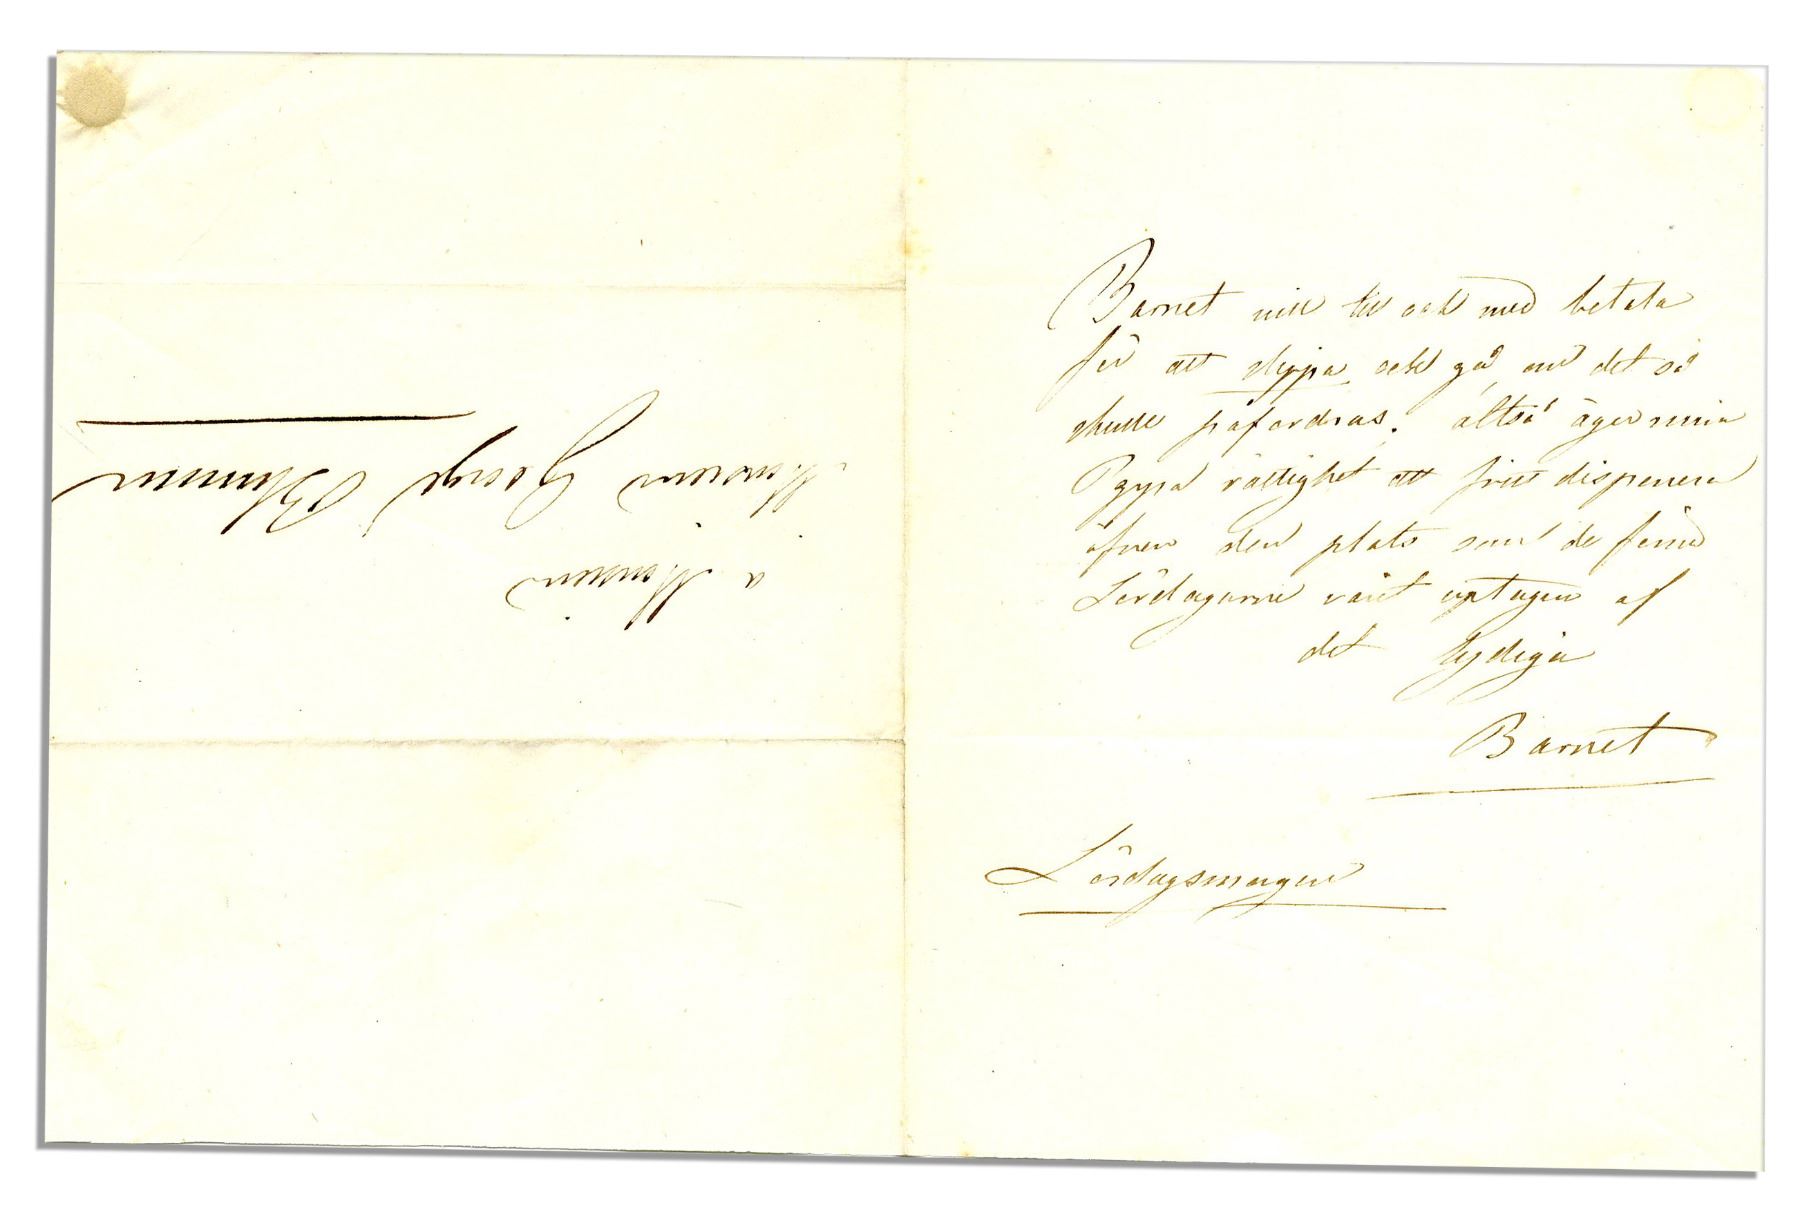 Barnet vill till och med betala
för att slippa och gå om det så
skulle påfordras. altså äger mina
rättighet att fritt disponera
äfven den plats som de förra
Lördagarne varit uptagen af
det lydiga
Barnet
Lördagsmorgon
à Monsieur
Monsieur George